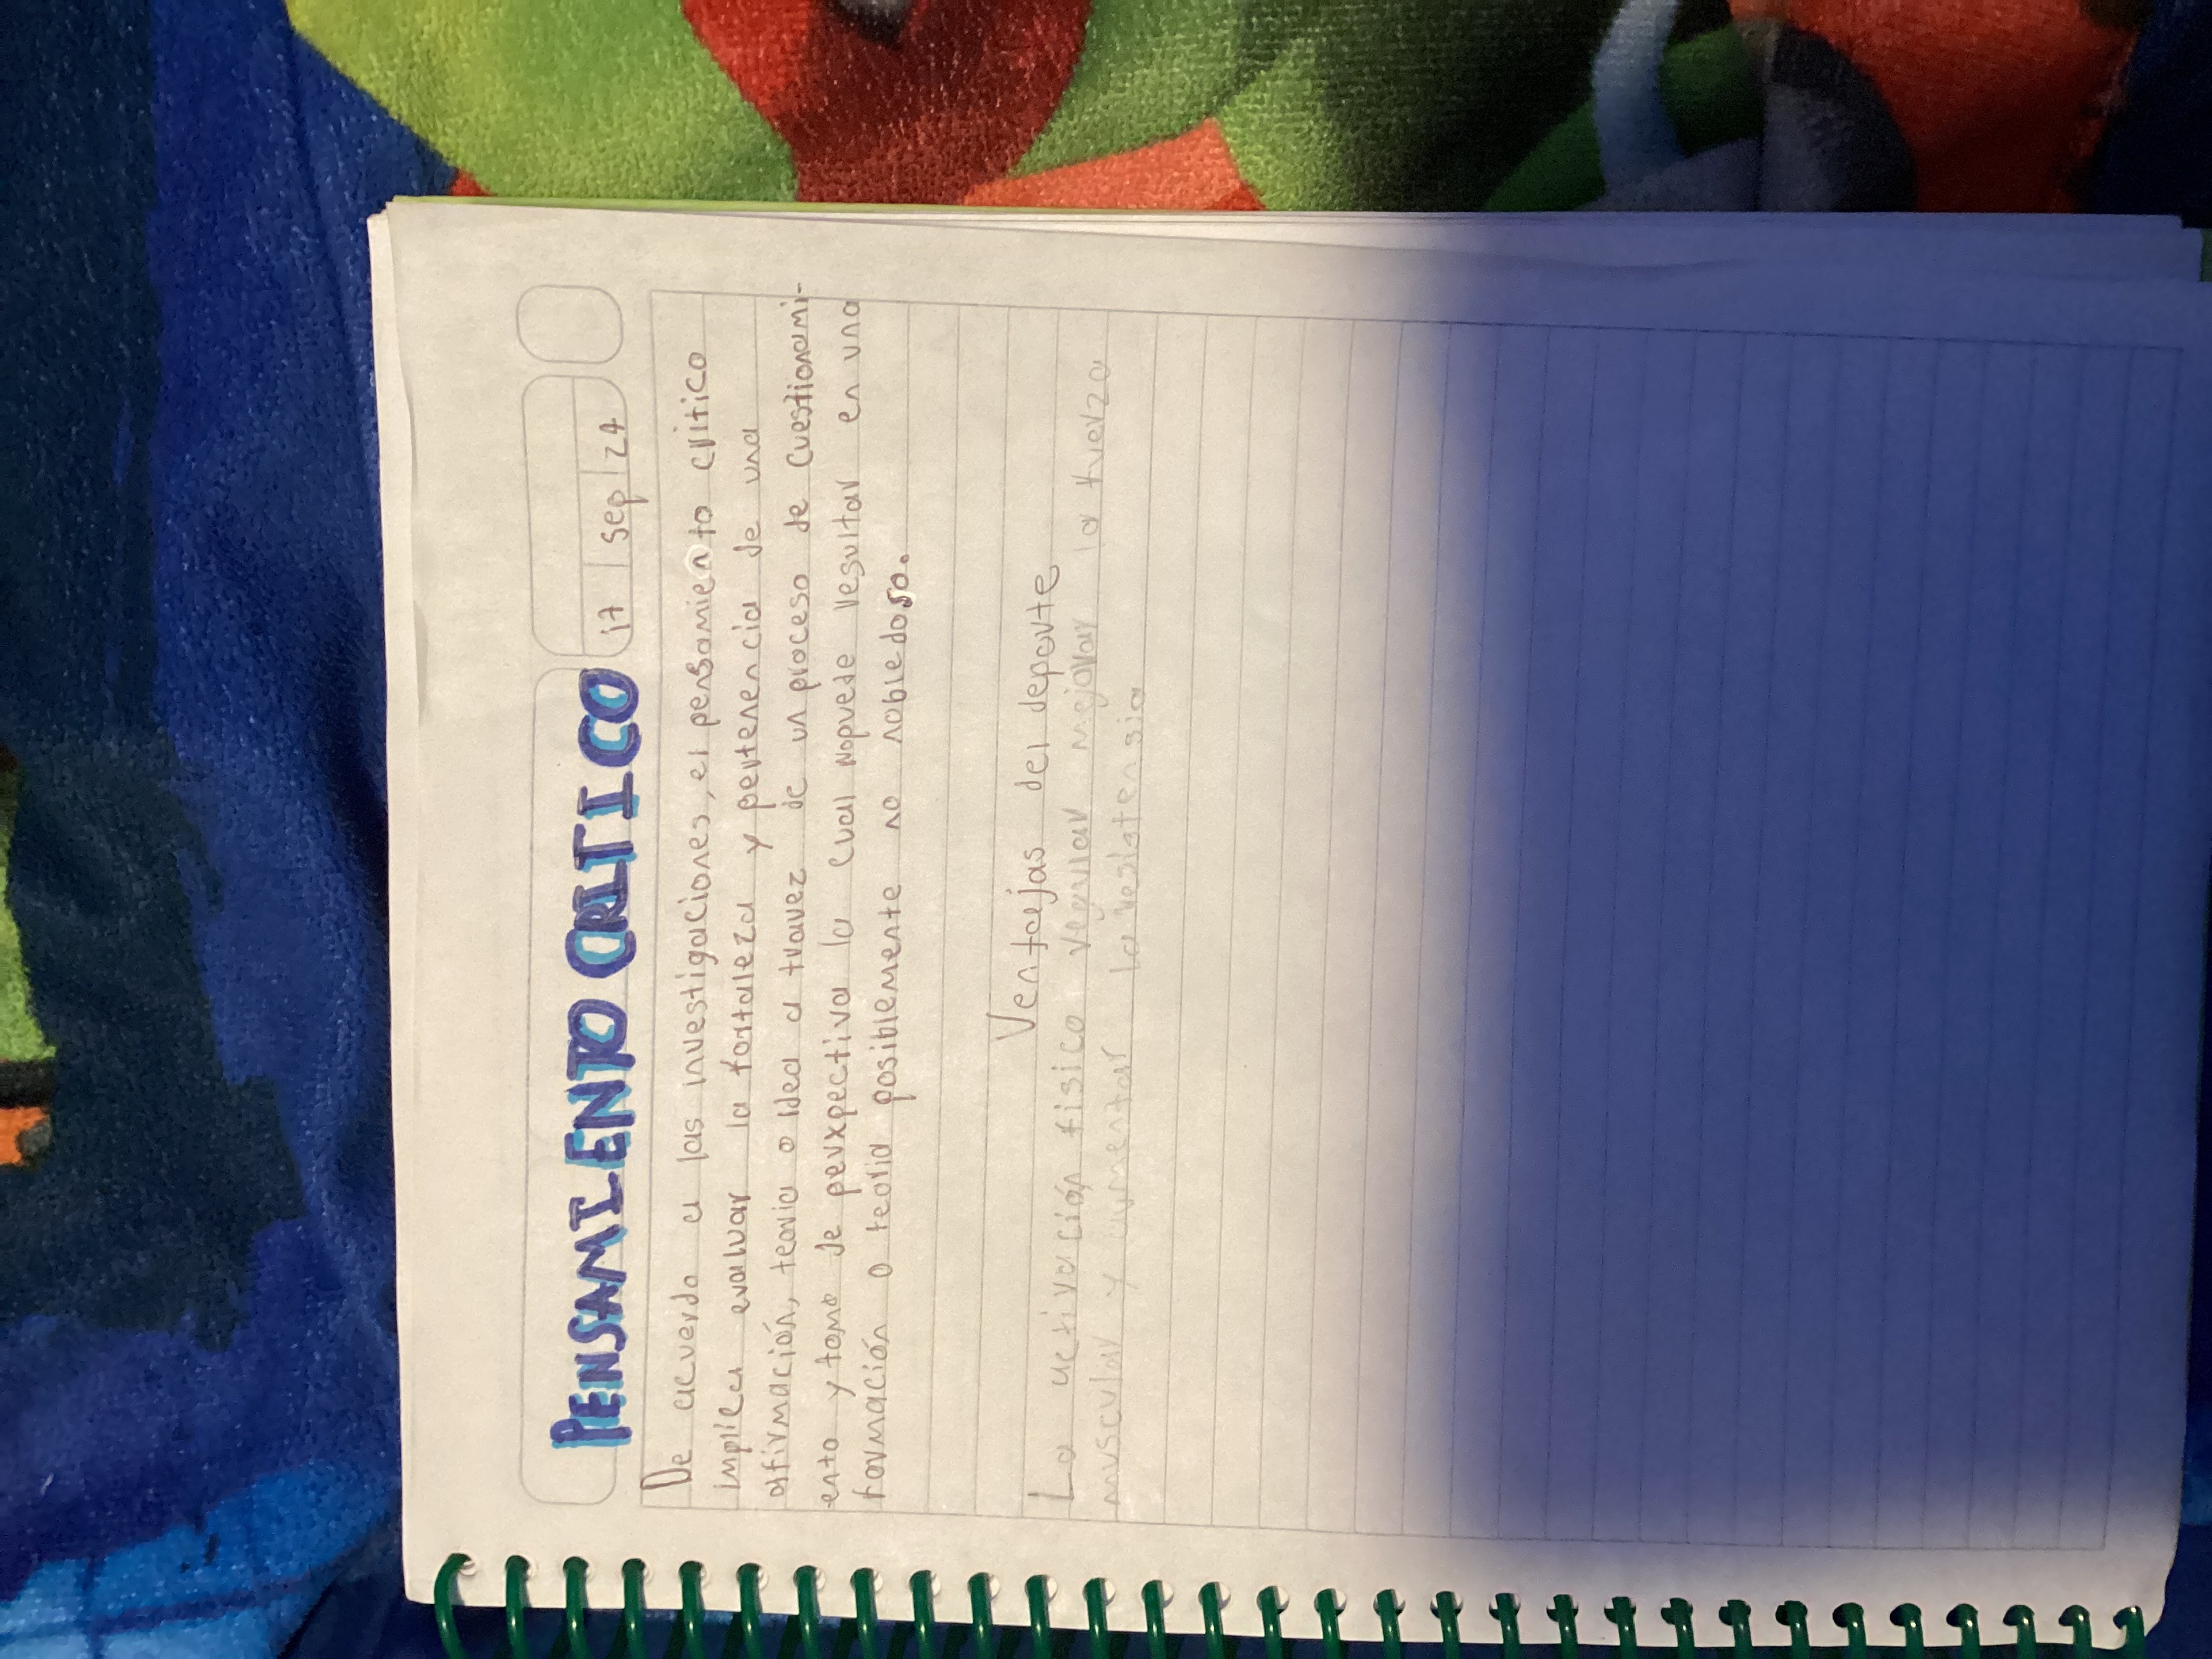 PENSAMIENTO CRITICO
17 | sep | 24
De acuerdo a las investigaciones, el pensamiento critico
implica evaluar la fortaleza y pertenencia de una
afirmación, teoria o idea a travez de un proceso de cuestionami-
ento y toma de perxpectiva lo cual nopuede resultar en una
formación o teoria posiblemente no nobledosa.
Ventajas del deporte
La activación fisica regular mejorar la fuerza
muscular y aumentar la resistensia